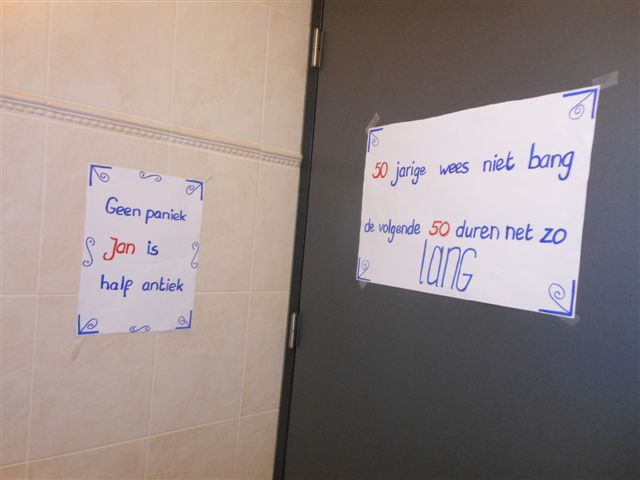 Geen paniek
Jan is
half antiek
50 jarige wees niet bang
de volgende 50 duren net zo
lanG